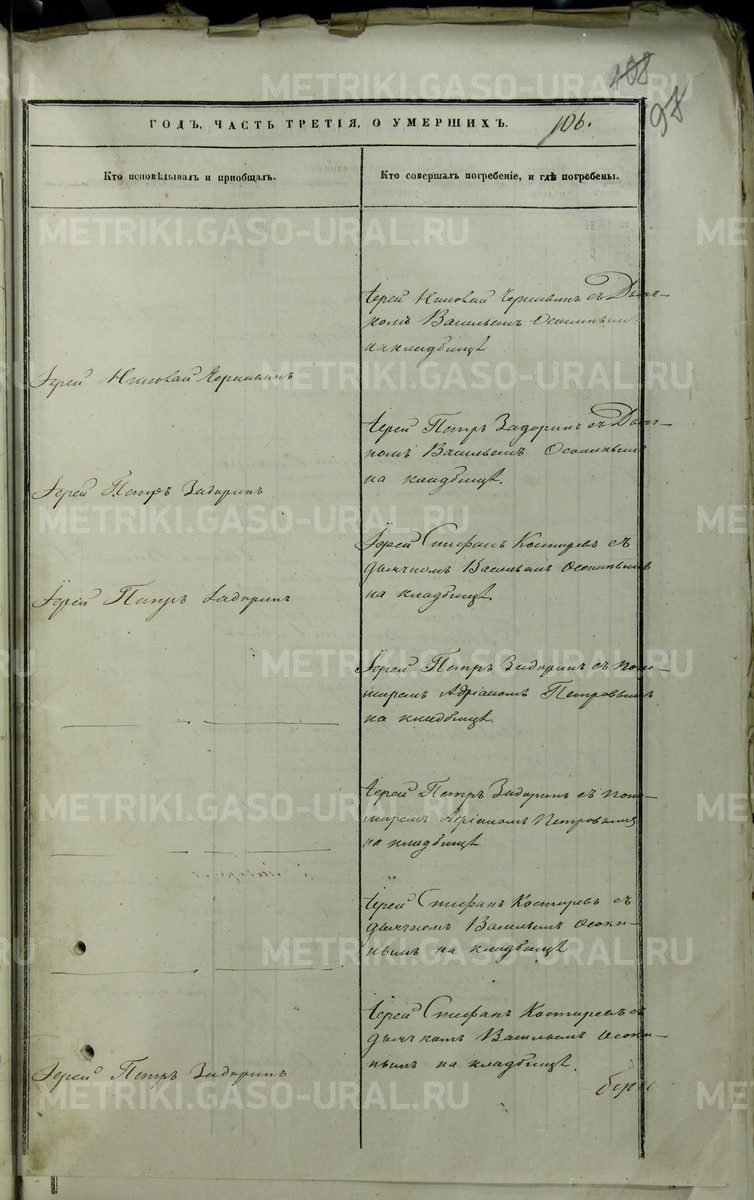 188
98
ГОДЪ, ЧАСТЬ ТРЕТІЯ, О УМЕРШИХЪ. 106.
Кто исповѣдывалъ и пріобщалъ.
Кто совершалъ погребеніе, и гдѣ погребены.
Іерей Николай
Іерей Николай съ Дьяч-
комъ Васильемъ Осокинымъ
на кладбищѣ
Іерей Петръ Задоринъ
Іерей Петръ Задоринъ съ Дьяч-
комъ Васильемъ Осокинымъ
на кладбищѣ.
Іерей Петръ Задоринъ
Іерей Стефанъ Костаревъ съ
дьячкомъ Васильемъ Осокинымъ
на кладбищѣ.
Іерей Петръ Задоринъ съ поно-
маремъ Адріаномъ Петровымъ
на кладбищѣ.
Іерей Петръ Задоринъ съ поно-
маремъ Адріаномъ Петровымъ
на кладбищѣ
Іерей Стефанъ Костаревъ съ
дьячкомъ Васильемъ Осоки-
нымъ на кладбищѣ
Іерей Петръ Задоринъ
Іерей Стефанъ Костаревъ съ
дьячкомъ Васильемъ Осоки-
нымъ на кладбищѣ.
METRIKI.GASO-URAL.RU